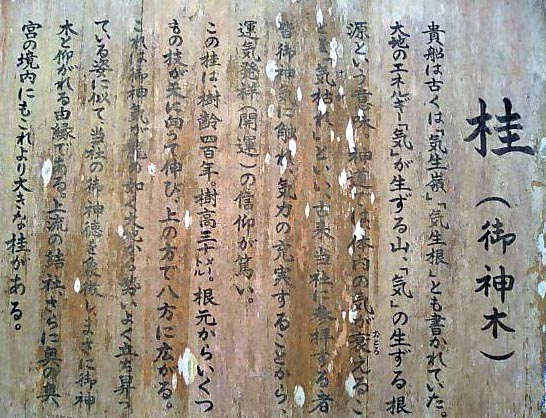 桂（御神木）
貴船は古くは「気生嶺」「気生根」とも書かれていた。
大地のエネルギー「気」が生ずる山、「気」の生ずる根
源という意味。神道では、体内の気が衰えるこ
おとろ
とを気枯れといい、古来、当社に参拝する者
皆御神気に触れ、気力の充実することから、
運気発祥（開運）の信仰が篤い。
この桂は樹齢四百年。樹高三十メートル。根元からいくつ
もの枝が天に向って伸び、上の方で八方に広がる。
これは御神気が龍の如く大地から勢いよく立ち昇っ
ている姿に似て、当社の御神徳を象徴し、まさに御神
木と仰がれる由縁である。上流の結社、さらに奥の奥
宮の境内にもこれより大きな桂がある。